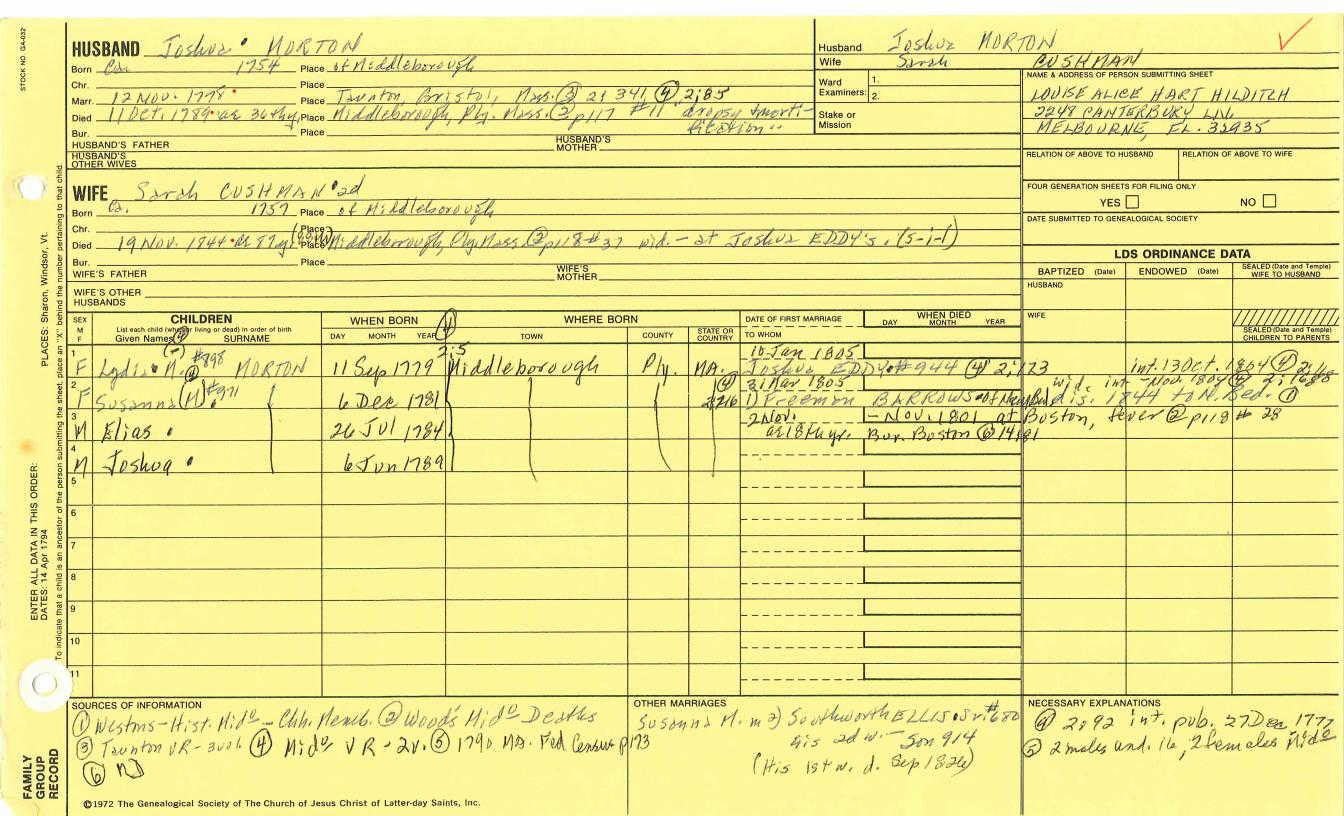 STOCK NO. GA-032
HUSBAND Joshua MORTON
Born Ca. 1754 Place of Middleborough
Chr. Place
Marr. 12 Nov. 1778 Place Taunton, Bristol, Mass. (3) 2:341 (4) 2:85
Died 11 Oct. 1789 ae 36th y. Place Middleborough, Ply. Mass. (2) p117 #11 "dropsy & morti-
fication"
Bur. Place
HUSBAND'S FATHER HUSBAND'S MOTHER
HUSBAND'S OTHER WIVES
Husband Joshua MORTON
Wife Sarah CUSHMAN
Ward Examiners: 1.
2.
Stake or Mission
NAME & ADDRESS OF PERSON SUBMITTING SHEET
LOUISE ALICE HART HILDITCH
2248 CANTERBURY LN
MELBOURNE, FL. 32935
RELATION OF ABOVE TO HUSBAND RELATION OF ABOVE TO WIFE
FOUR GENERATION SHEETS FOR FILING ONLY
YES NO
DATE SUBMITTED TO GENEALOGICAL SOCIETY
WIFE Sarah CUSHMAN 2d
Born Ca. 1757 Place of Middleborough
Chr. Place
Died 19 Nov. 1844 ae 87 y. Place Middleborough, Ply. Mass. (2) p118 #37 wid. - at Joshua EDDY's. (5-1-1)
Bur. Place
WIFE'S FATHER WIFE'S MOTHER
WIFE'S OTHER HUSBANDS
LDS ORDINANCE DATA
BAPTIZED (Date) ENDOWED (Date) SEALED (Date and Temple) WIFE TO HUSBAND
HUSBAND
WIFE
SEALED (Date and Temple) CHILDREN TO PARENTS
SEX M F CHILDREN WHEN BORN (1) WHERE BORN DATE OF FIRST MARRIAGE WHEN DIED
List each child (whether living or dead) in order of birth
Given Names SURNAME DAY MONTH YEAR TOWN COUNTY STATE OR COUNTRY TO WHOM DAY MONTH YEAR
2:5 10 Jan 1805
1 F Lydia M. #898 MORTON 11 Sep 1779 Middleborough Ply. MA. Joshua EDDY #944 (4) 2:123 int. 13 Oct. 1804 (4)
3 Mar 1805 wid. int - Nov. 1804 (4)
2 F Susanna (M) #971 6 Dec 1781 (4) 2:216 1) Freeman BARROWS of dis. 1844 to N. Bed. (1)
2 Nov. - Nov. 1801 at Boston, fever (2) p118 # 28
3 M Elias 26 Jul 1784 ae 18th yr. Bur. Boston (6)
4 M Joshua 6 Jun 1789
5
6
7
8
9
10
11
SOURCES OF INFORMATION
(1) Westons-Hist. Mido - Chh. Memb. (2) Wood's Mido Deaths
(3) Taunton VR - 3 vols (4) Mido VR - 2v. (5) 1790 MA. Fed Census p173
(6)
OTHER MARRIAGES
Susanna M. m 2) Southworth ELLIS Sr. #680
his 2d w. - Son 914
(His 1st w. d. Sep 1826)
NECESSARY EXPLANATIONS
(4) 2:92 int. pub. 27 Dec 1777
(5) 2 males and. 16, 2 females Mido
©1972 The Genealogical Society of The Church of Jesus Christ of Latter-day Saints, Inc.
FAMILY GROUP RECORD
ENTER ALL DATA IN THIS ORDER:
DATES: 14 Apr 1794
PLACES: Sharon, Windsor, Vt.
To indicate that a child is an ancestor of the person submitting the sheet, place an "X" behind the number pertaining to that child.